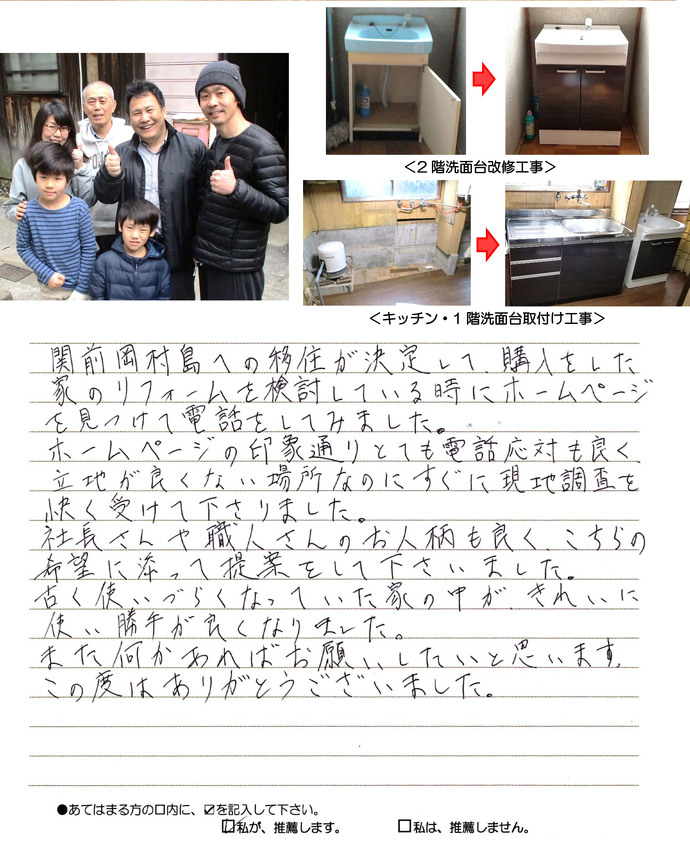 <2階洗面台改修工事>
<キッチン・1階洗面台取付け工事>
関前岡村島への移住が決定して、購入をした
家のリフォームを検討している時にホームページ
を見つけて電話をしてみました。
ホームページの印象通りとても電話応対も良く、
立地が良くない場所なのにすぐに現地調査を
快く受けて下さりました。
社長さんや職人さんのお人柄も良く、こちらの
希望に添って提案をして下さいました。
古く使いづらくなっていた家の中が、きれいに
使い勝手が良くなりました。
また何かあればお願いしたいと思います。
この度はありがとうございました。
●あてはまる方の口内に、☑を記入して下さい。
☑私が、推薦します。 □私は、推薦しません。